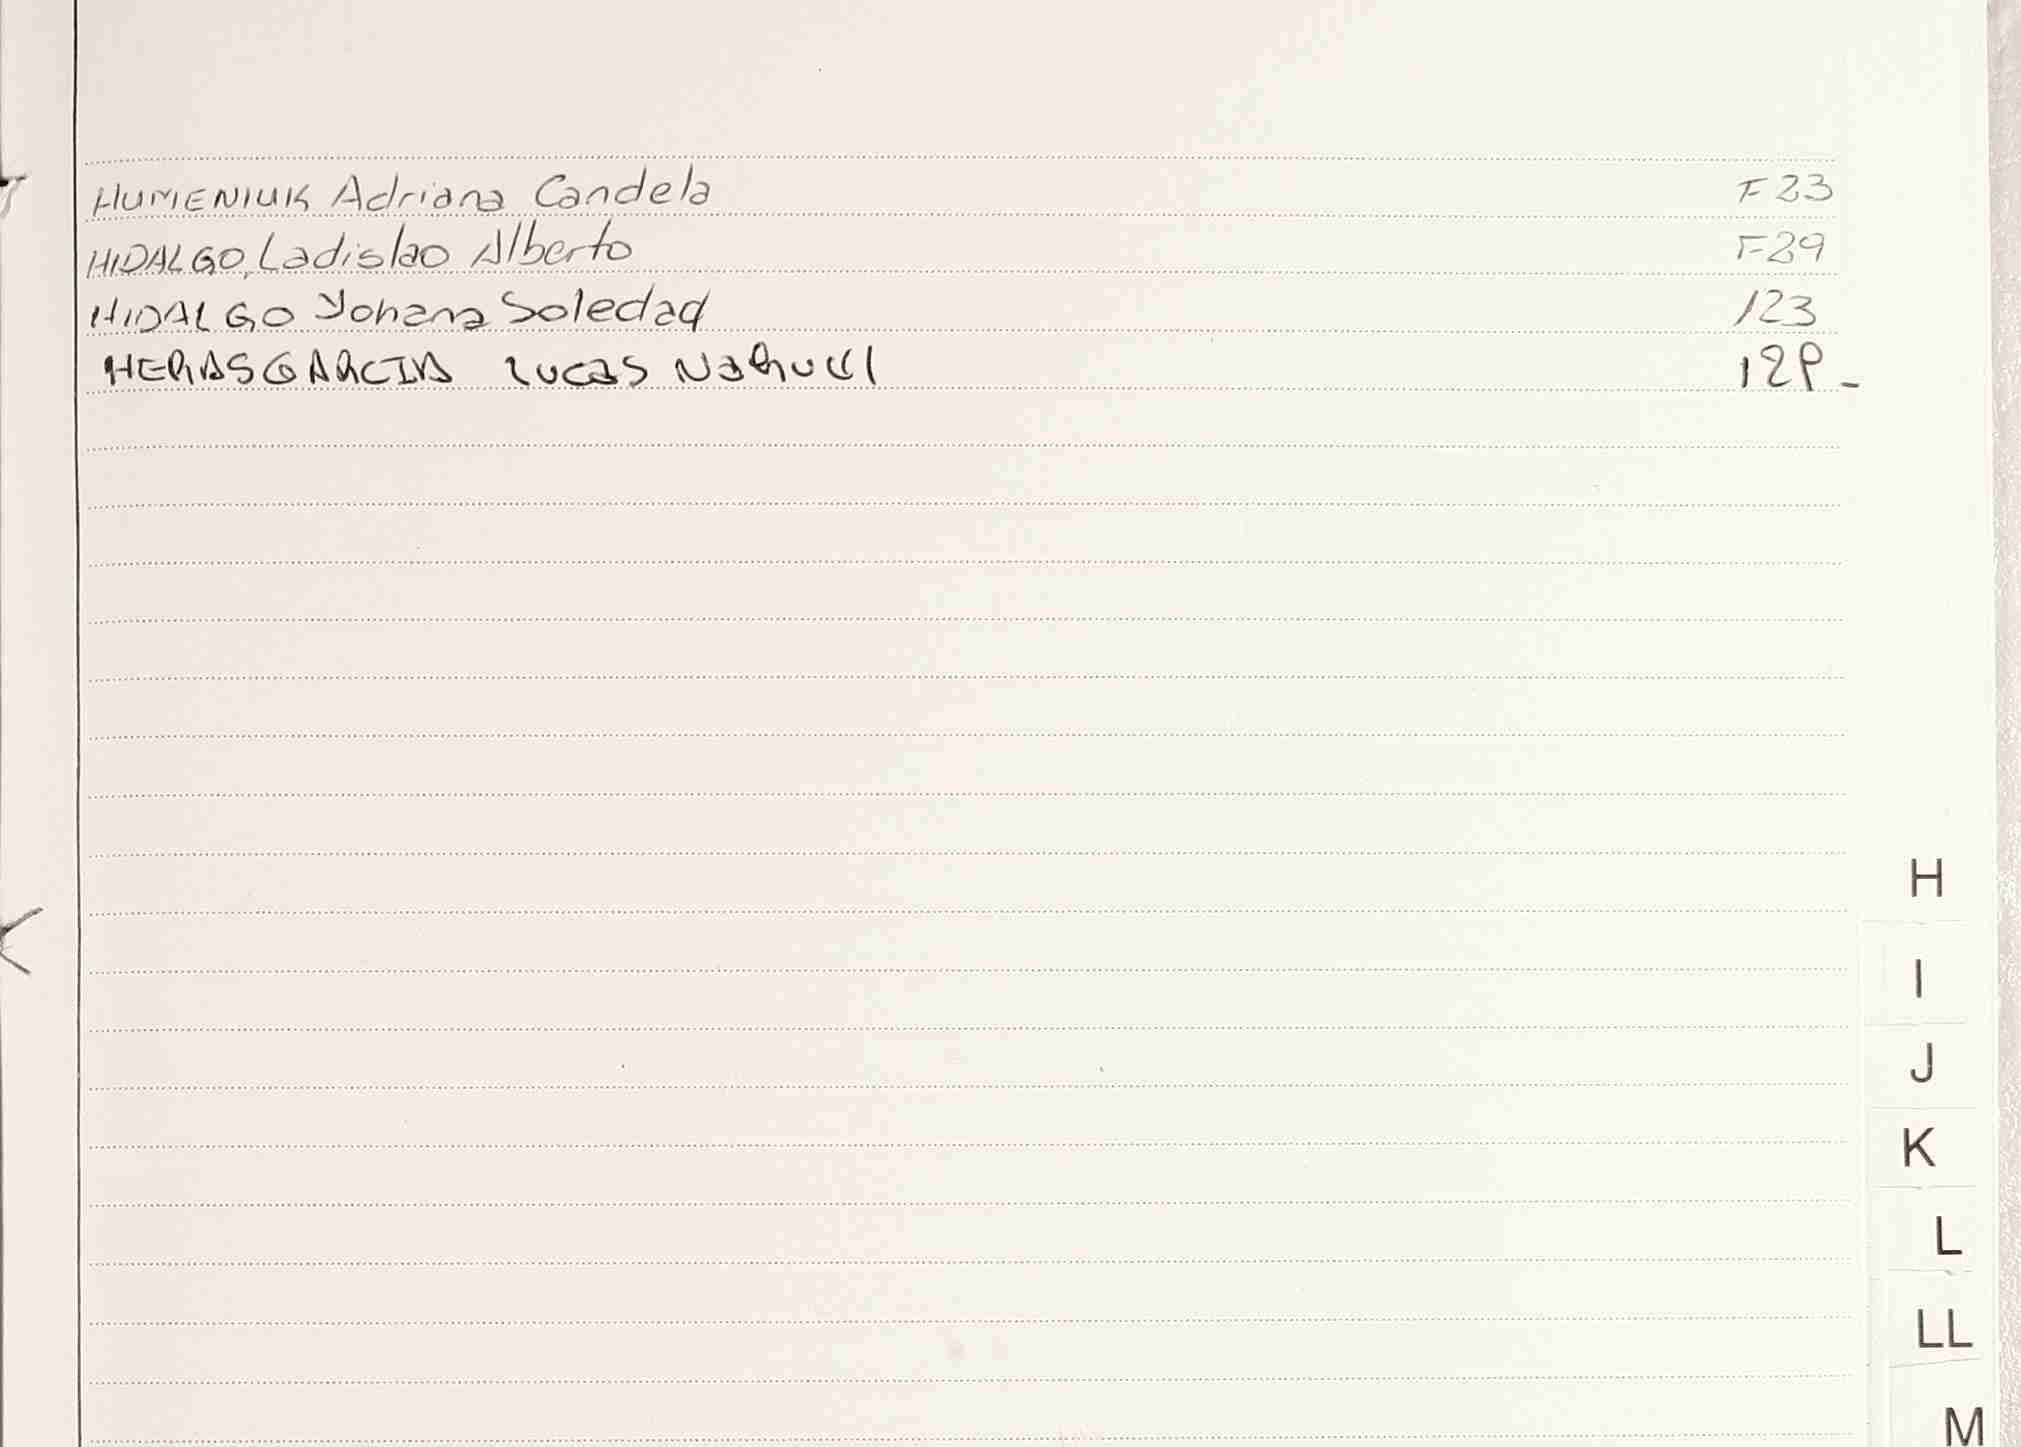 HUMENIUK Adriana Candela F23
HIDALGO, Ladislao Alberto F29
HIDALGO Yohana Soledad 123
HERAS GARCIA Lucas Nahuel 129-
H
I
J
K
L
LL
M